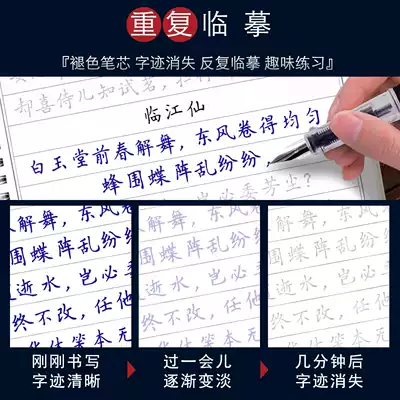 重复临摹
『褪色笔芯 字迹消失 反复临摹 趣味练习』
郝喜侍儿知试茗，扫
临江仙
白玉堂前春解舞，东风卷得均匀
蜂围蝶阵乱纷纷，
委芳尘？
解舞，东风卷
围蝶阵乱纷纷
逝水，岂必委
终不改，任他
华休笑本无
解舞，东风
围蝶阵乱纷
逝水，岂必
终不改，任
华休笑本
解舞，东风
围蝶阵乱纷
逝水，岂必
终不改，任
华休笑本
刚刚书写
字迹清晰
过一会儿
逐渐变淡
几分钟后
字迹消失